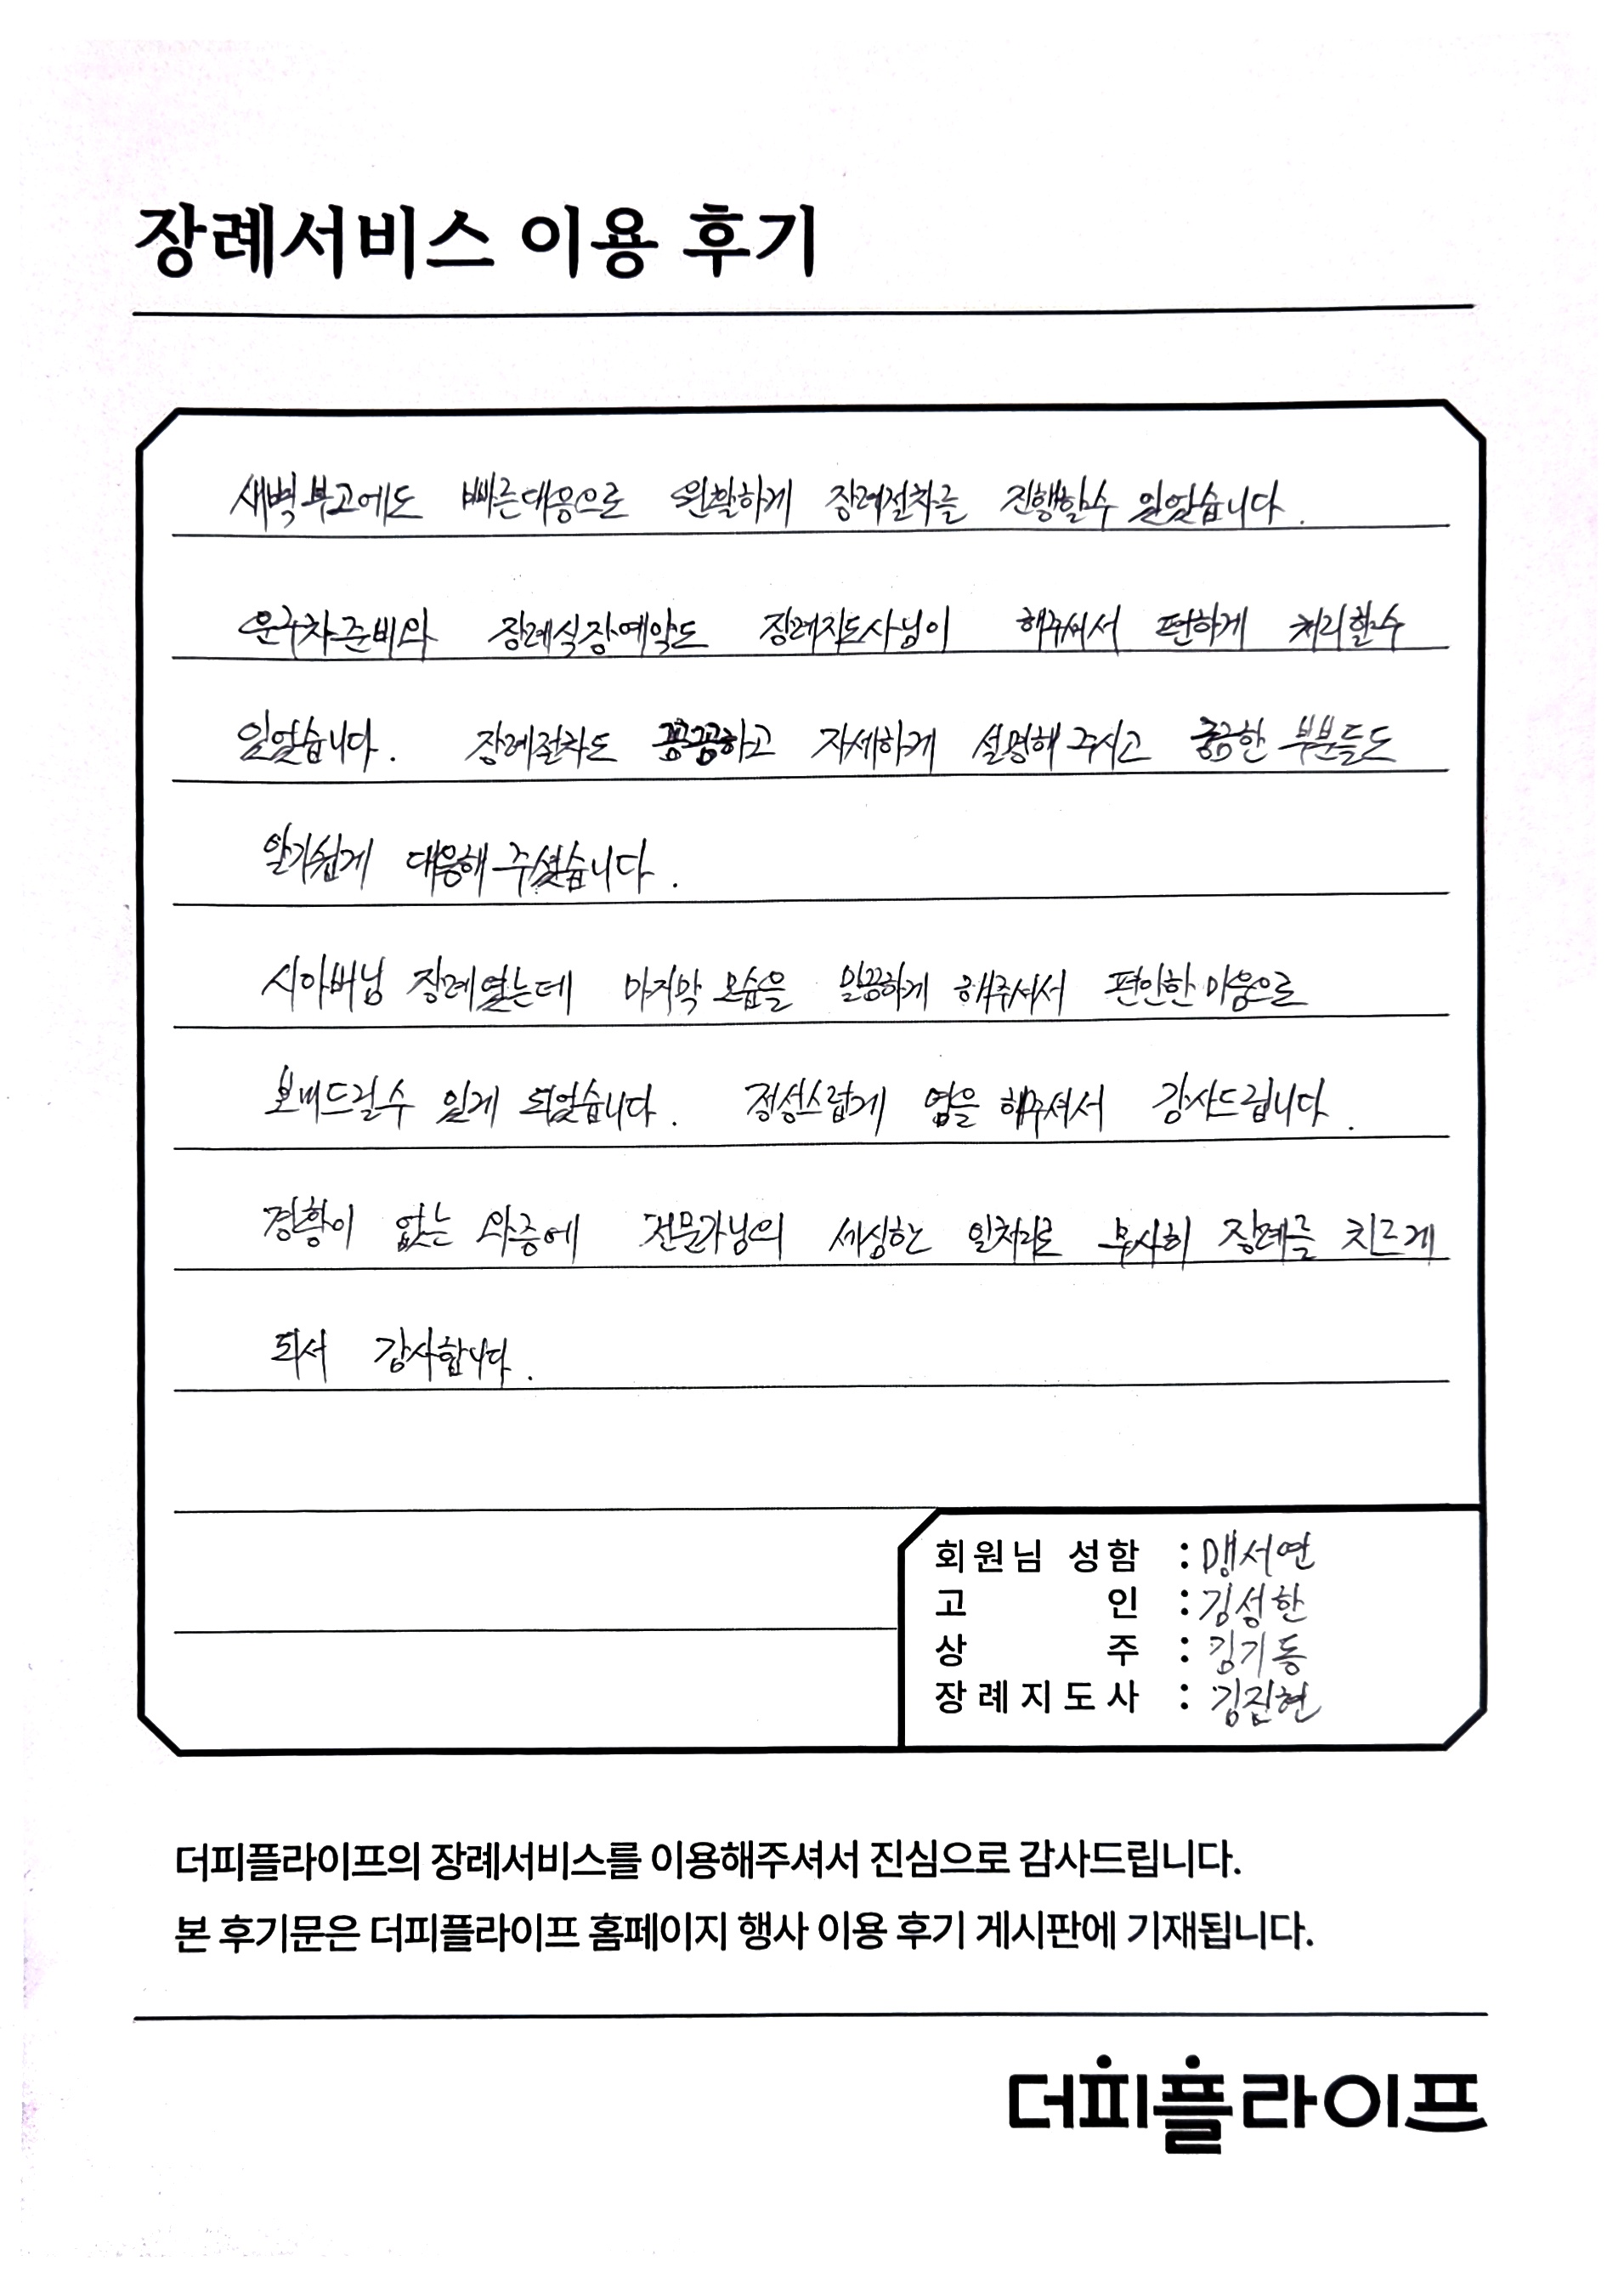 장례서비스 이용 후기
새벽부고에도 빠른대응으로 원활하게 장례절차를 진행할수 있었습니다.
운구차준비와 장례식장예약도 장례지도사님이 해주셔서 편하게 처리할수
있었습니다. 장례절차도 꼼꼼하고 자세하게 설명해 주시고 궁금한 부분들도
알기쉽게 대응해 주셨습니다.
시아버님 장례였는데 마지막 모습을 말끔하게 해주셔서 편안한 마음으로
보내드릴수 있게 되었습니다. 정성스럽게 염을 해주셔서 감사드립니다.
경황이 없는 와중에 전문가님의 세심한 일처리로 무사히 장례를 치르게
되서 감사합니다.
회원님 성함 : 맹서연
고 인 : 김성한
상 주 : 김기동
장례지도사 : 김진현
더피플라이프의 장례서비스를 이용해주셔서 진심으로 감사드립니다.
본 후기문은 더피플라이프 홈페이지 행사 이용 후기 게시판에 기재됩니다.
더피플라이프